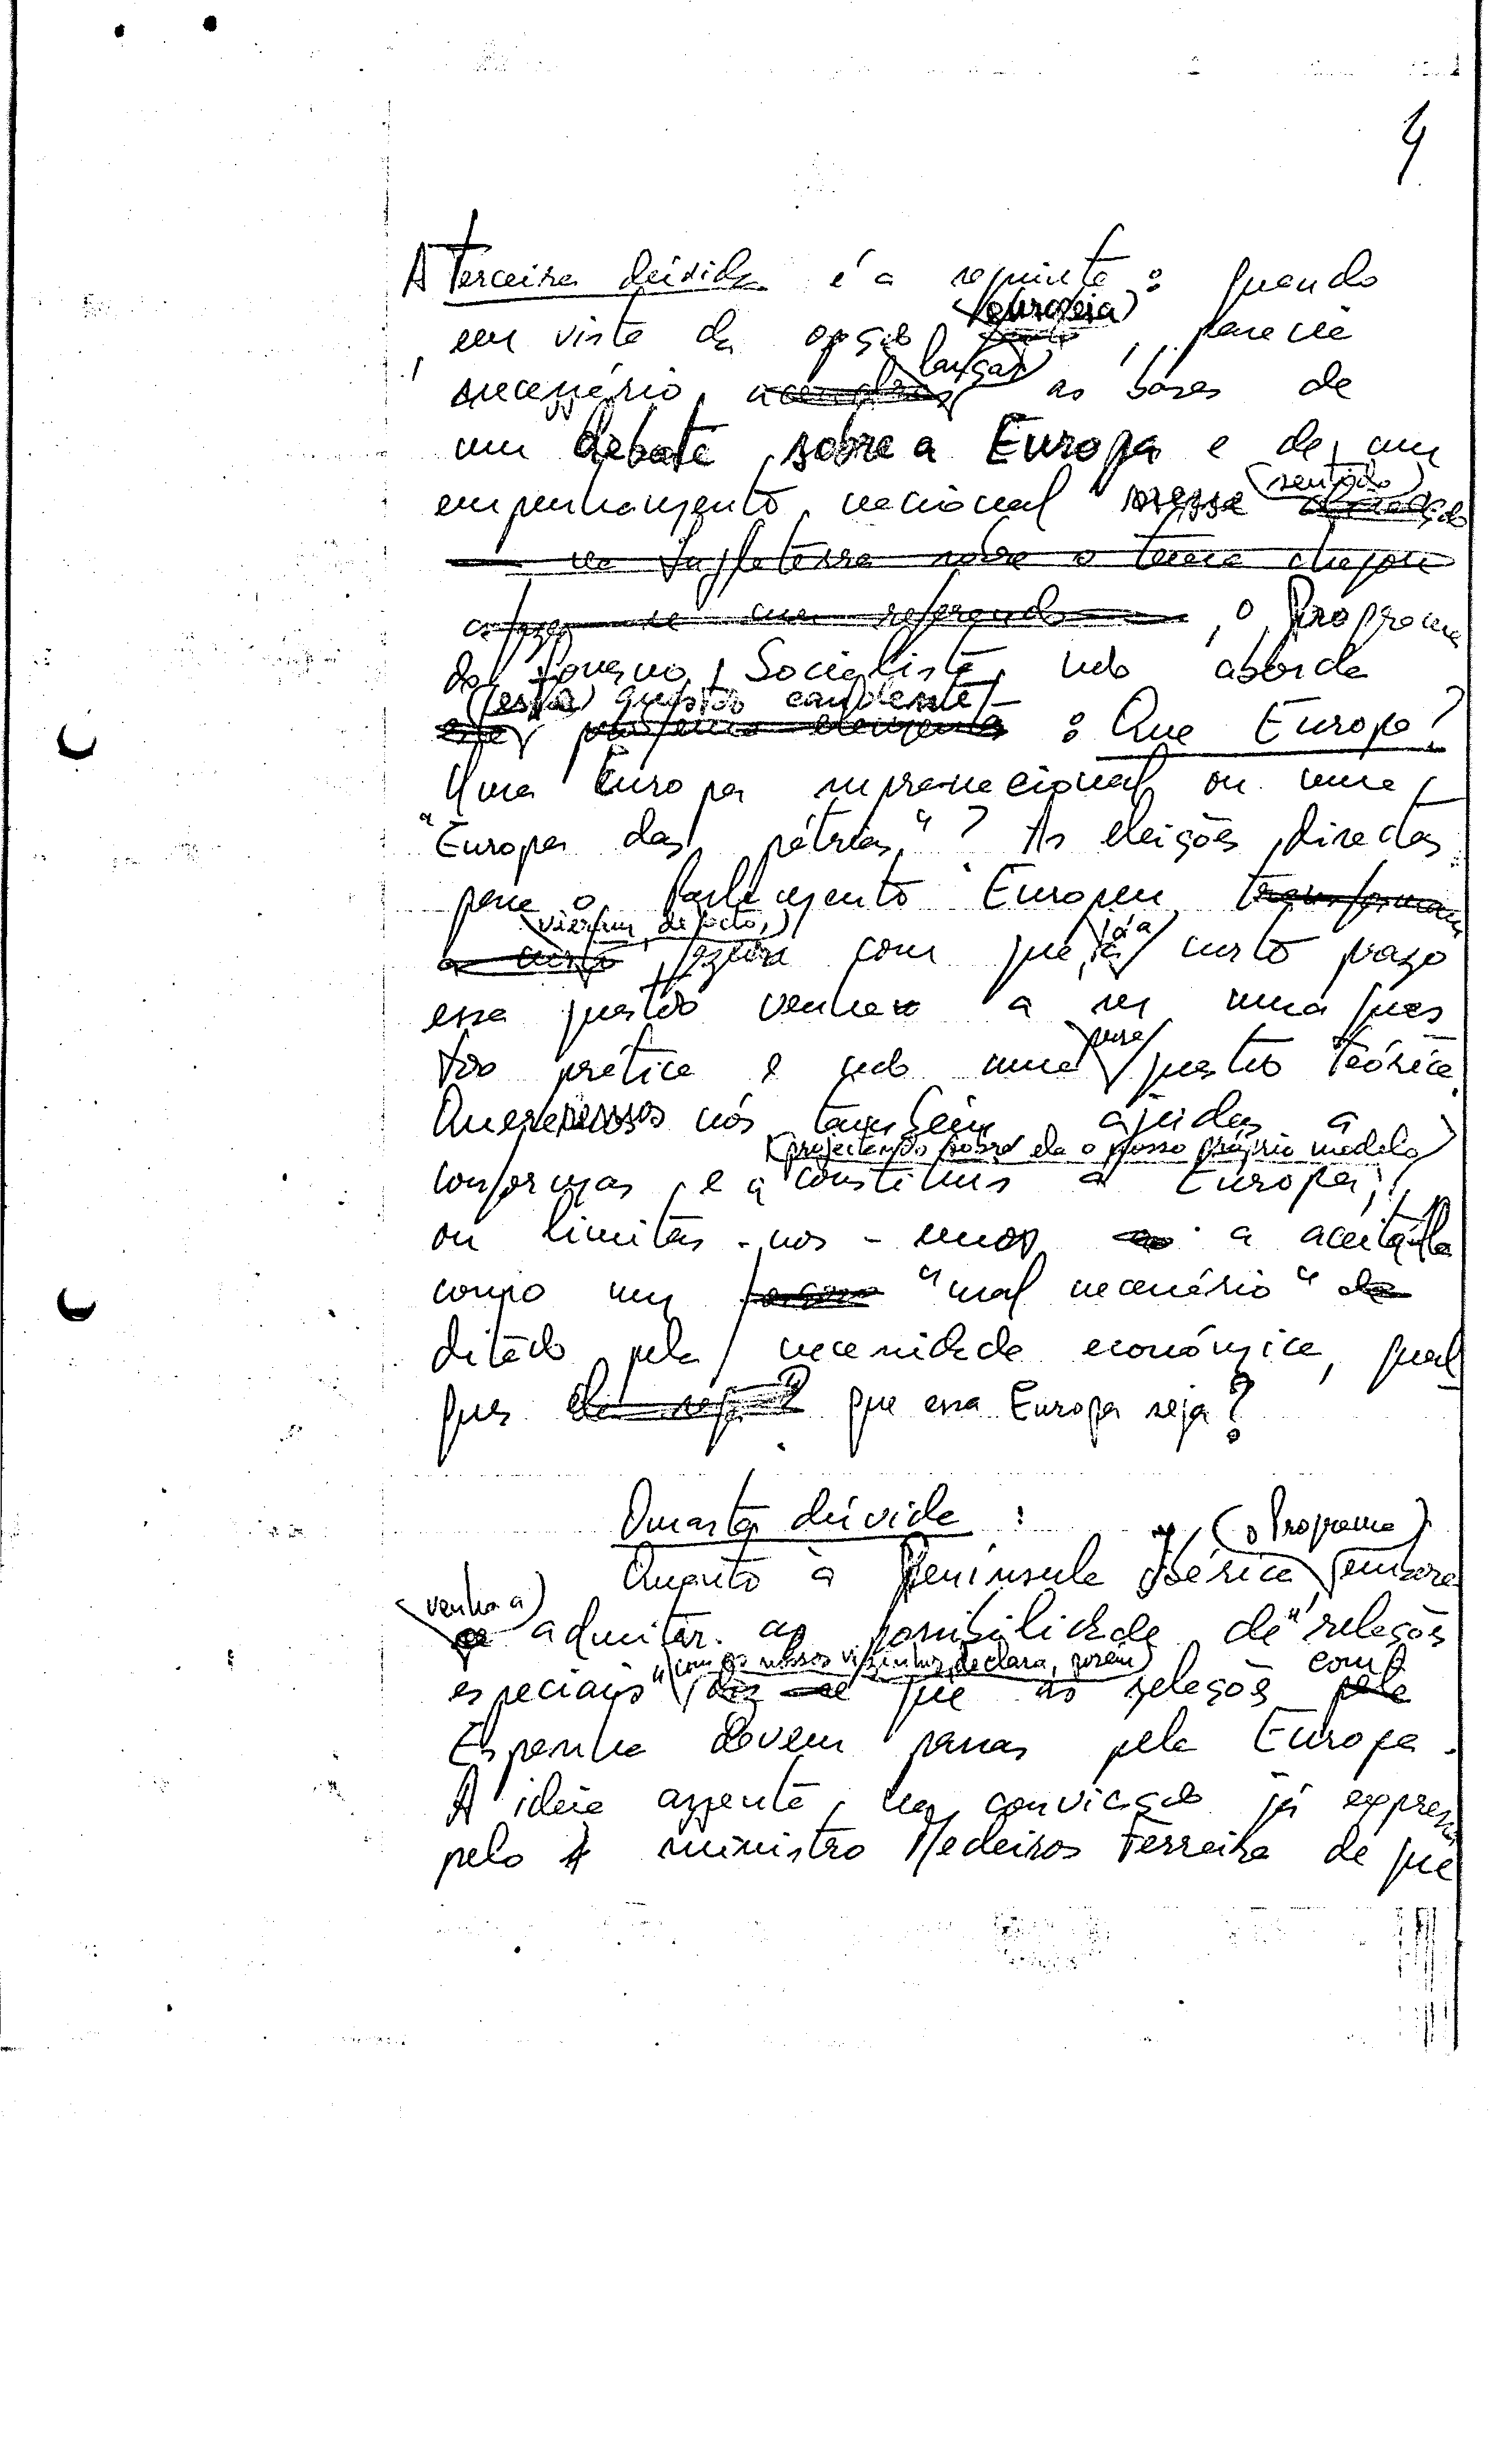 4
A Terceira dúvida é a seguinte: quando
em vista da opção (europeia), parecia
necessário lançar as bases de
um debate sobre a Europa e de um
empenhamento nacional nesse (sentido)
na Inglaterra sobre o tema chegou
a fazer-se um referendo, o Programa
do Governo Socialista não aborda
(esta) questão candente
: Que Europa?
Uma Europa supranacional ou uma
"Europa das pátrias"? As eleições directas
para o Parlamento Europeu transformam
(vieram, de facto,)
a curto fazer com que, já a curto prazo
essa questão venha a ser uma ques
tão prática e não uma pura questão teórica.
Queremos nós também ajudar a
(projectando sobre ela o nosso próprio modelo)
conformar e a constituir a Europa,
ou limitar-nos-emos a aceitá-la
como um "mal necessário"
ditado pela necessidade económica, qual
quer que essa Europa seja?
Quarta dúvida:
(o Programa)
Quanto à Península Ibérica, embora
venha a
admitir a possibilidade de "relações
(com os nossos vizinhos, declara, porém)
especiais" diz-se que as relações com a
Espanha devem passar pela Europa.
A ideia assenta na convicção já expressa
pelo ministro Medeiros Ferreira de que